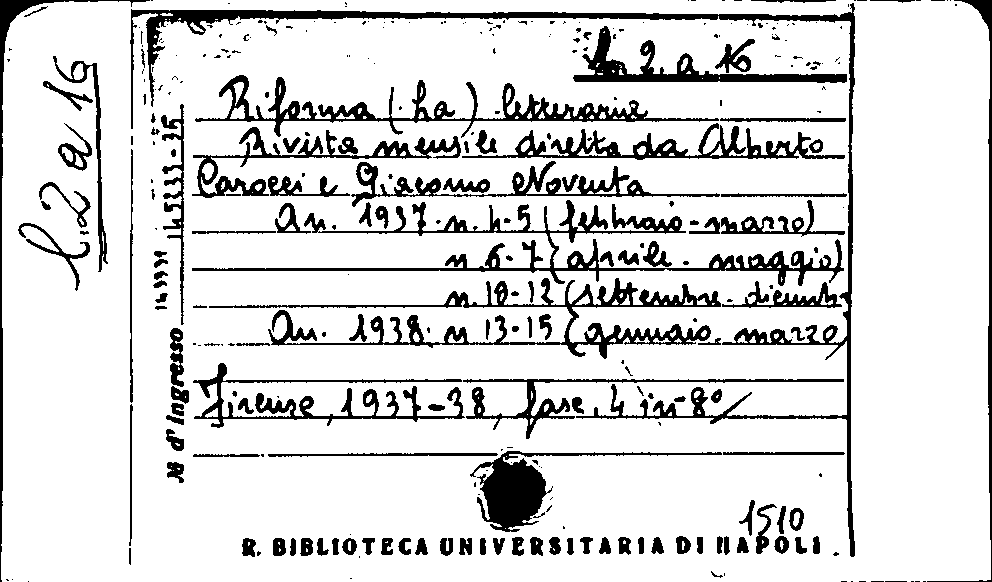 L. 2. a. 16
l. 2 a 16
Riforma (La) letteraria
Rivista mensile diretta da Alberto
Carocci e Giacomo Noventa
An. 1937. n. 4-5 (febbraio-marzo)
n. 6-7 (aprile. maggio)
n. 10-12 (settembre. dicembr
An. 1938. n 13-15 (gennaio. marzo)
Firenze, 1937-38, fasc. 4 in-8º
N d'Ingresso
1510
R. BIBLIOTECA UNIVERSITARIA DI NAPOLI